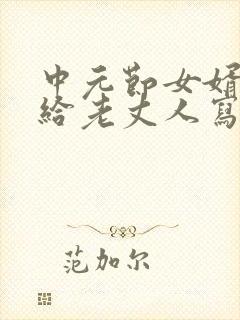 中元節女婿
給老丈人寫
范加尔